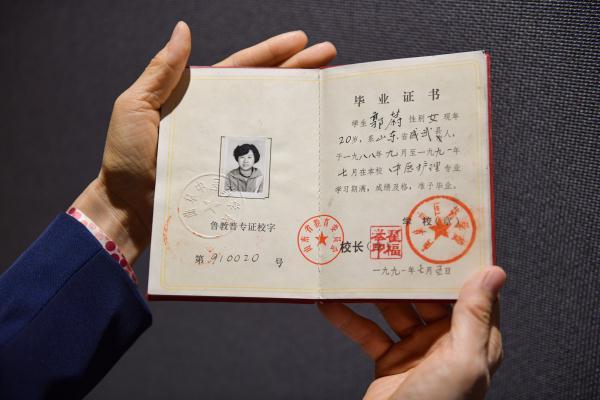 鲁教普专证校字
第 910020 号
山东省教育委员会
毕业证书
学生 郭蔚 性别 女 现年
20岁，系山东省成武县人，
于一九八八年九月至一九九一年
七月在本校 中医护理 专业
学习期满，成绩及格，准予毕业。
学校（章）
校长
一九九一年七月 日